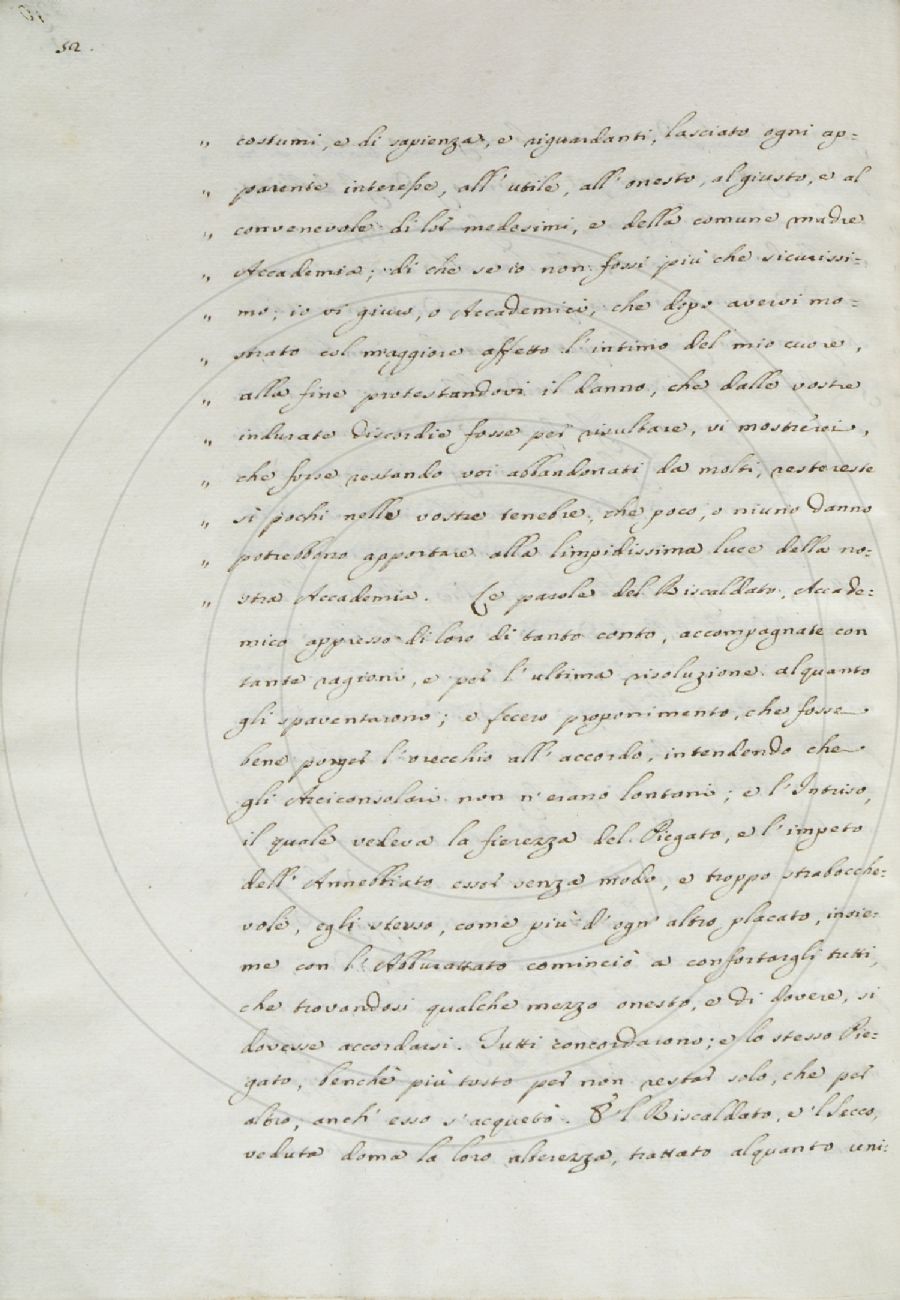 52.
„ costumi, e di sapienza, e riguardanti, lasciato ogni ap=
„ parente interesse, all' utile, all' onesto, al giusto, e al
„ convenevole di lor medesimi, e della comune madre
„ Accademia; di che se io non fossi più che sicurissi=
„ mo; io vi giuro, o Accademici, che dopo avervi mo=
„ strato col maggiore affetto l'intimo del mio cuore,
„ alla fine protestandovi il danno, che dalle vostre
„ indurate discordie fosse per risultare, vi mostrerei,
„ che forse restando voi abbandonati da molti, restereste
„ sì pochi nelle vostre tenebre, che poco, o niuno danno
„ potrebbono apportare alla limpidissima luce della no=
„ stra Accademia. Le parole del Riscaldato, Accade=
mico appresso di loro di tanto conto, accompagnate con
tante ragioni, e per l'ultima risoluzione alquanto
gli spaventarono; e fecero proponimento, che fosse
bene porger l'orecchio all' accordo, intendendo che
gli Arciconsolari non n'erano lontani; e l'Intriso,
il quale vedeva la fierezza del Piegato, e l'impeto
dell' Annebbiato esser senza modo, e troppo strabocche=
vole, egli stesso, come più d'ogn' altro placato, insie=
me con l'Abburattato cominciò a confortargli tutti,
che trovandosi qualche mezzo onesto, e di dovere, si
dovesse accordarsi. Tutti concordarono; e lo stesso Pie=
gato, benchè più tosto per non restar solo, che per
altro, anch' esso s'acquetò. E 'l Riscaldato, e 'l Secco,
veduta doma la loro alterezza, trattato alquanto uni=